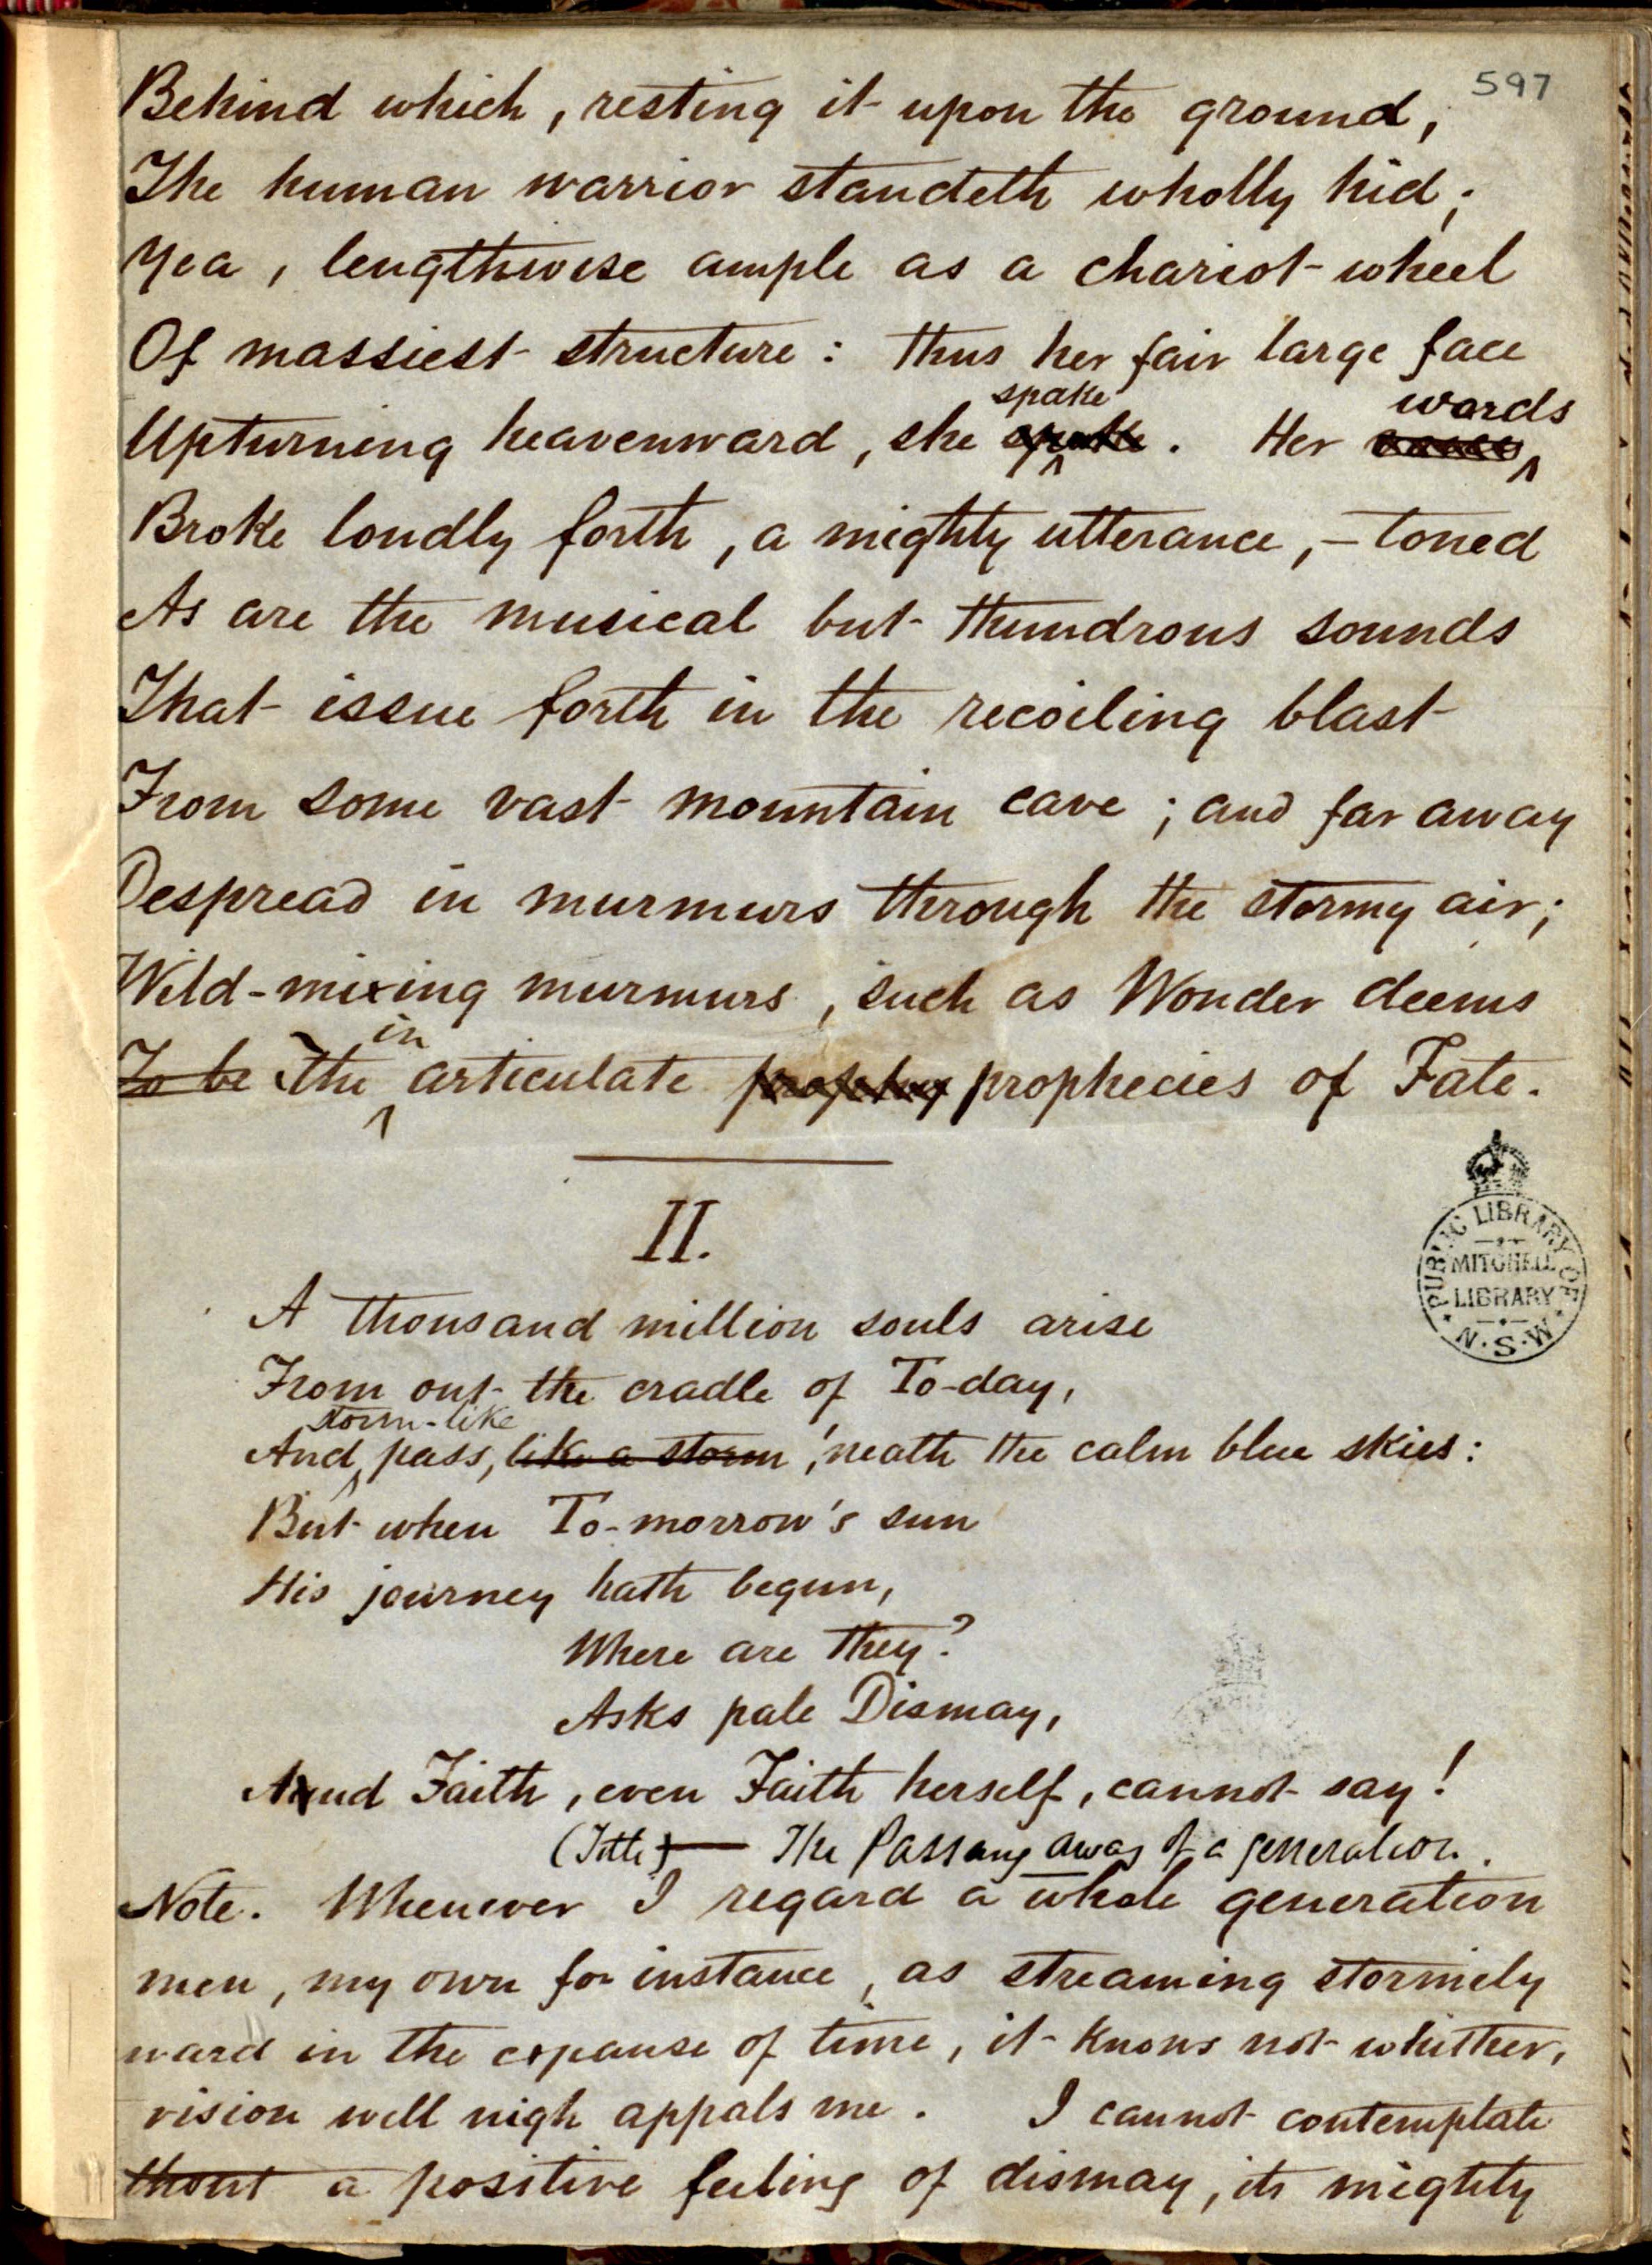 597
Behind which, resting it upon the ground,
The human warrior standeth wholly hid;
Yea, lengthwise ample as a chariot-wheel
Of massiest structure: thus her fair large face
spake words
Upturning heavenward, she . Her
Broke loudly forth, a mighty utterance,—toned
As are the musical but thundrous sounds
That issue forth in the recoiling blast
From some vast mountain cave; and far away
Despread in murmurs through the stormy air;
Wild-mixing murmurs, such as Wonder deems
in
To be The articulate prophecies of Fate.
II.
PUBLIC LIBRARY OF N.S.W.
MITCHELL
LIBRARY
A thousand million souls arise
From out the cradle of To-day,
storm-like
And pass, like a storm, 'neath the calm blue skies:
But when To-morrow's sun
His journey hath begun,
Where are they?
Asks pale Dismay,
And Faith, even Faith herself, cannot say!
(Title)— The Passing away of a generation.
Note. Whenever I regard a whole generation
men, my own for instance, as streaming stormily
ward in the expanse of time, it knows not whither,
vision well nigh appals me. I cannot contemplate
thout a positive feeling of dismay, its mighty